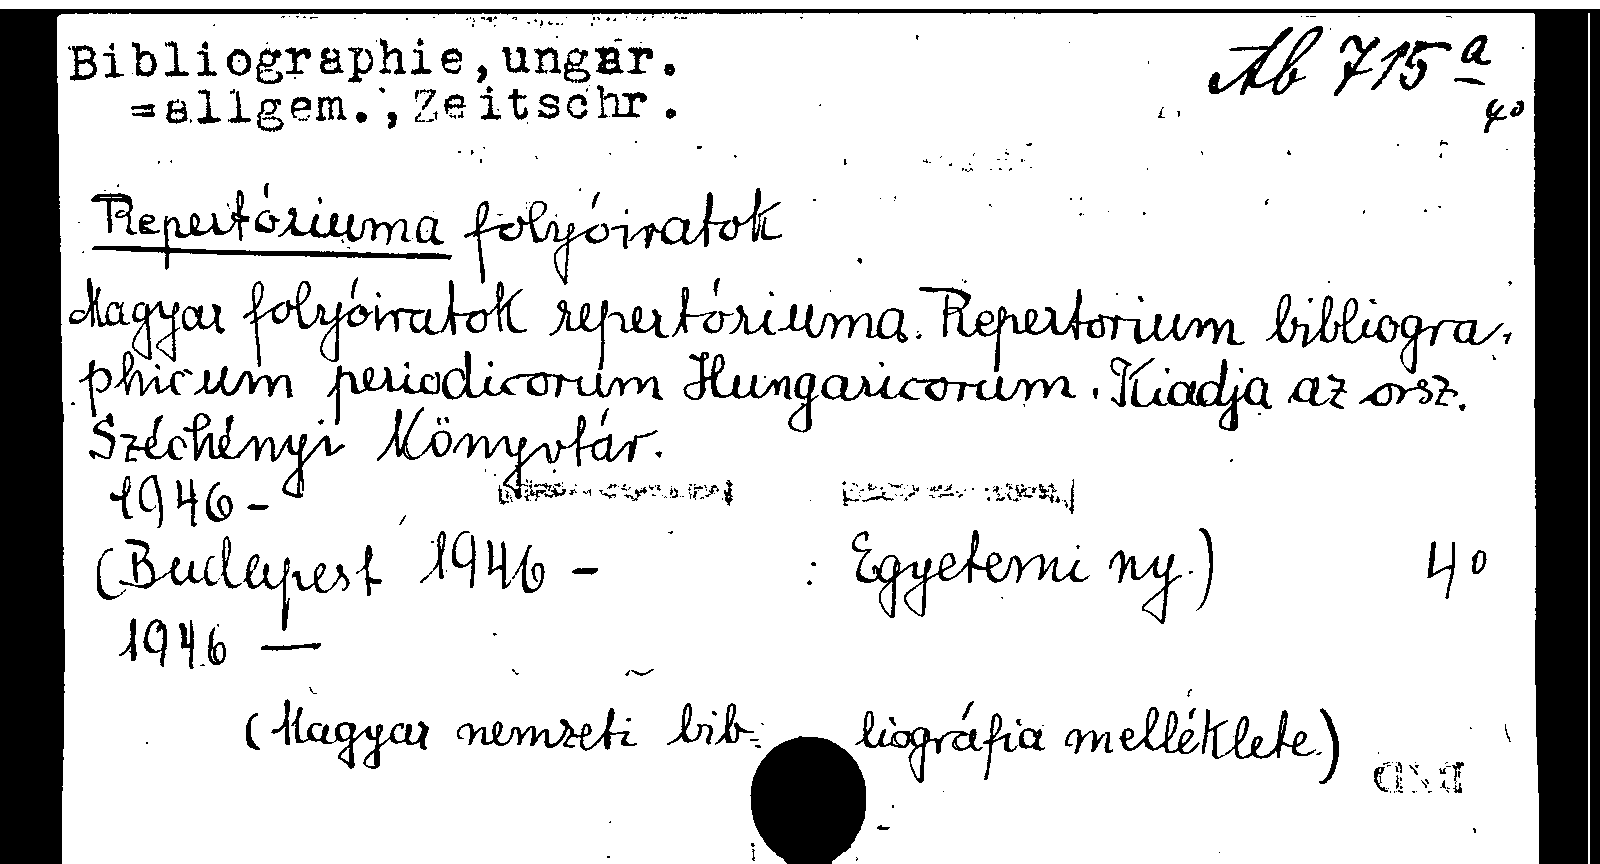 Bibliographie,ungar. Ab 715 a
=allgem.,Zeitschr. 4°
Repertóriuma folyóiratok
Magyar folyóiratok repertóriuma. Repertorium bibliogra-
phicum periodicorum Hungaricorum. Kiadja az orsz.
Széchényi Könyvtár.
1946-
(Budapest 1946 - : Egyetemi ny.) 4°
1946 —
(Magyar nemzeti bib- liográfia melléklete.)